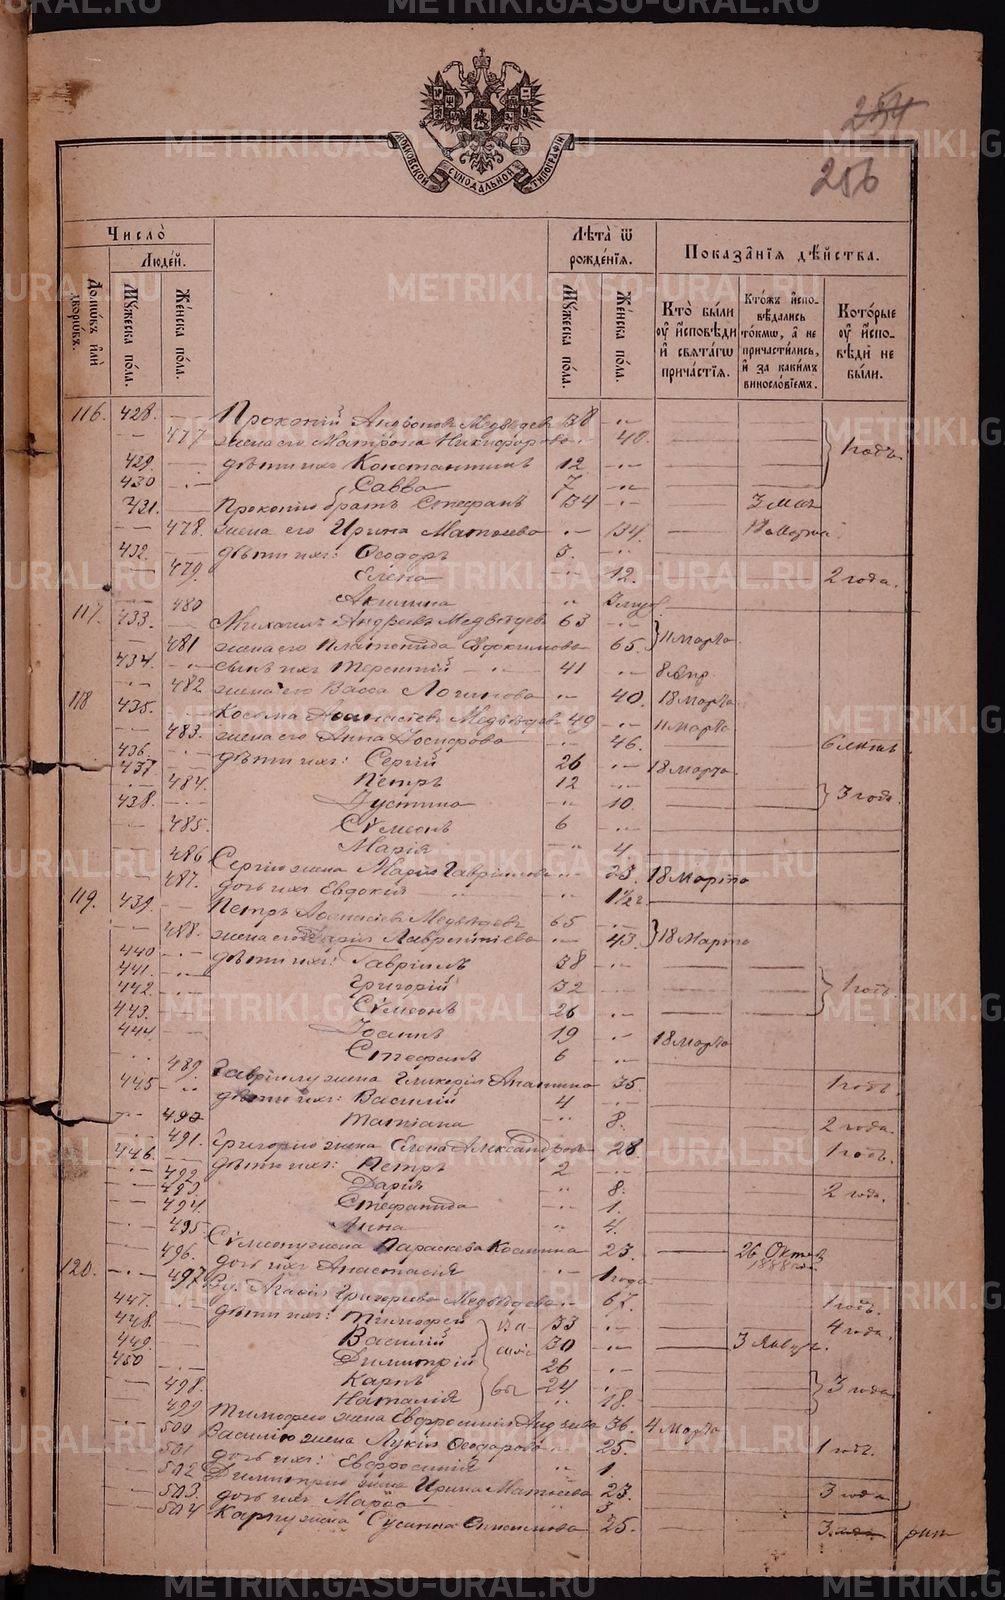 METRIKI.GASO-URAL.RU
МОСКОВСКОЙ СѴНОДАЛЬНОЙ ТИПОГРАФІИ
254
256
Число̀
Людей.
Домѡвъ или дворѡвъ.
Мꙋжеска пола.
Женска пола.
Лѣта̀ ѿ рожденїѧ.
Мꙋжеска пола.
Женска пола.
Показанїѧ дѣйства.
Кто̀ были оу исповѣди и свѧтагѡ причастїѧ.
Ктожъ исповѣдались токмѡ, а не причастились, и за какимъ винословїемъ.
Которые оу исповѣди не были.
116. 428. Прокопій Андроновъ Медвѣдевъ 38
477 жена его Матрона Никифорова 40. 1 годъ
429. дѣти ихъ: Константинъ 12.
430 Савва 7
431. Прокопію братъ Стефанъ 34
478. жена его Ирина Матѳеева 34.
432. дѣти ихъ: Ѳеодоръ 3.
479. Елена 12. 2 года.
480 Акилина
117. 433. Михаилъ Андреевъ Медвѣдевъ 63
481 жена его Платонида Евдокимова 65. 11 Марта
434. сынъ ихъ Терентій 41
482 жена его Васса Логинова 40. 18 Марта
118 435. Косьма Аѳанасіевъ Медвѣдевъ 49 11 Марта
483. жена его Анна Іосифова 46. 6 лѣтъ
436. дѣти ихъ: Сергій 26 18 Марта
437 Петръ 12
484. Іустина 10. 3 года.
438. Сѵмеонъ 6
485. Марія 4
486 Сергію жена Марія Гавріилова 23. 18 Марта
487. дочь ихъ Евдокія 1½ г.
119. 439. Петръ Аѳанасіевъ Медвѣдевъ 65
488. жена его Дарія Лаврентіева 43. 18 Марта
440 дѣти ихъ: Гавріилъ 38
441. Григорій 32
442. Сѵмеонъ 26 1 годъ.
443. Іоаннъ 19 18 Марта
444. Стефанъ 6
489. Гавріилу жена Гликерія 35. 1 годъ
445 дѣти ихъ: Василій 4
490 Татіана 8. 2 года.
491. Григорію жена Елена Александрова 28 1 годъ.
446. дѣти ихъ: Петръ 2
492 Дарія 8. 2 года.
493 Стефанида 1.
494. Анна 4.
495 Сѵмеону жена Параскева Косьмина 23. 26 Октяб 1888 год.
496. дочь ихъ Анастасія 1 года
120. 497 Вд. Агафія Григорьева Медвѣдева 67. 1 годъ.
447. дѣти ихъ: Тимофей 33 4 года.
448. Василій 30 3 Январ.
449. Димитрій 26
450 Карпъ 24 3 года
498. Наталія 18.
499 Тимофею жена Евфросинія 36. 4 Марта
500 Василію жена Лукія Ѳеодорова 25. 1 годъ.
501 дочь ихъ: Евфросинія 1.
502 Димитрію жена Ирина Матѳеева 23. 3 года
503. дочь ихъ Марѳа 3
504 Карпу жена Сусанна 25.